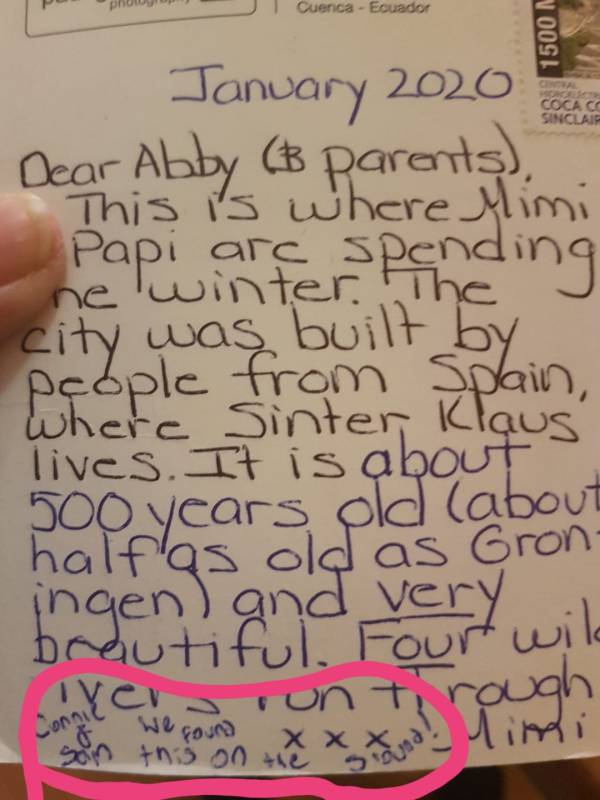 photography
Cuenca - Ecuador
1500 M
CENTRAL
COCA CO
SINCLAIR
January 2020
Dear Abby (& parents),
This is where Mimi
Papi are spending
he winter. The
city was built by
people from Spain,
where Sinter Klaus
lives. It is about
500 years old (about
half as old as Gron-
ingen) and very
beautiful. Four wil
ivers run through
Connie & Sam we found this on the ground!
x x x Mimi